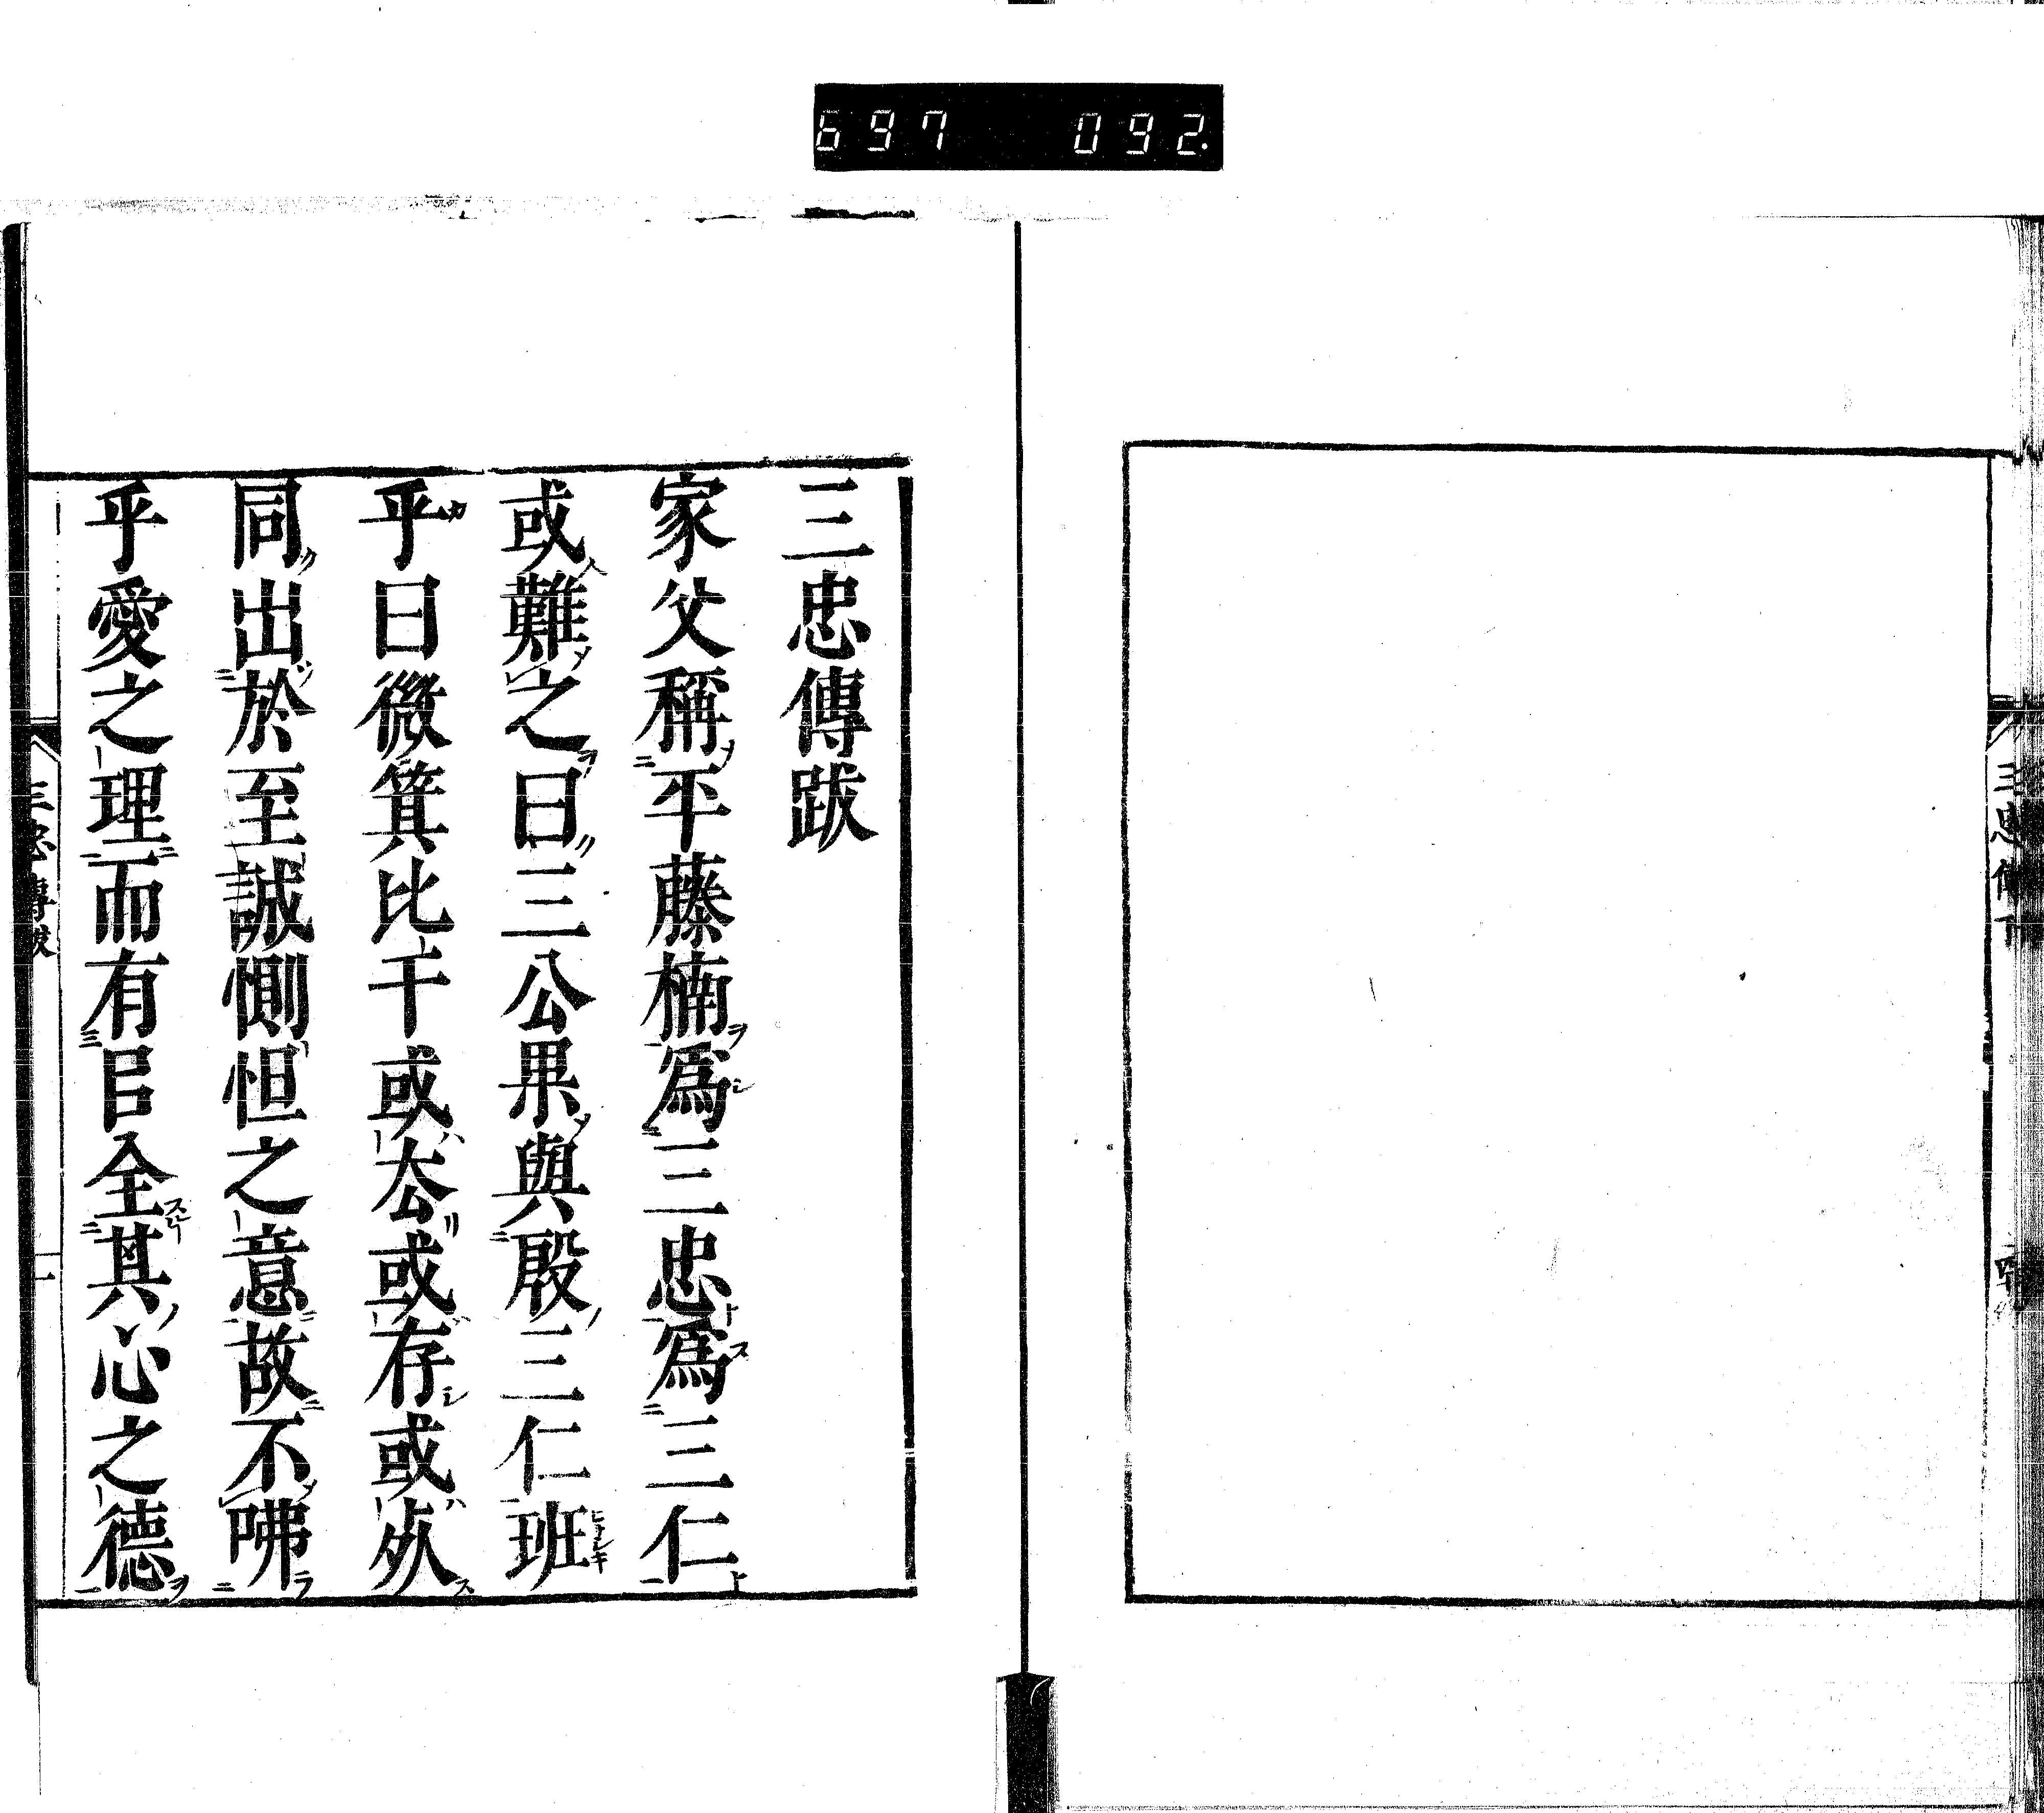 697 092.
三忠傳跋
家父稱平藤楠爲三忠爲三仁
或難之曰三公果與殷三仁班
乎曰微箕比干或厺或存或𣦸
同出於至誠惻怛之意故不咈
乎愛之理而有㠯全其心之德
三忠傳跋
一